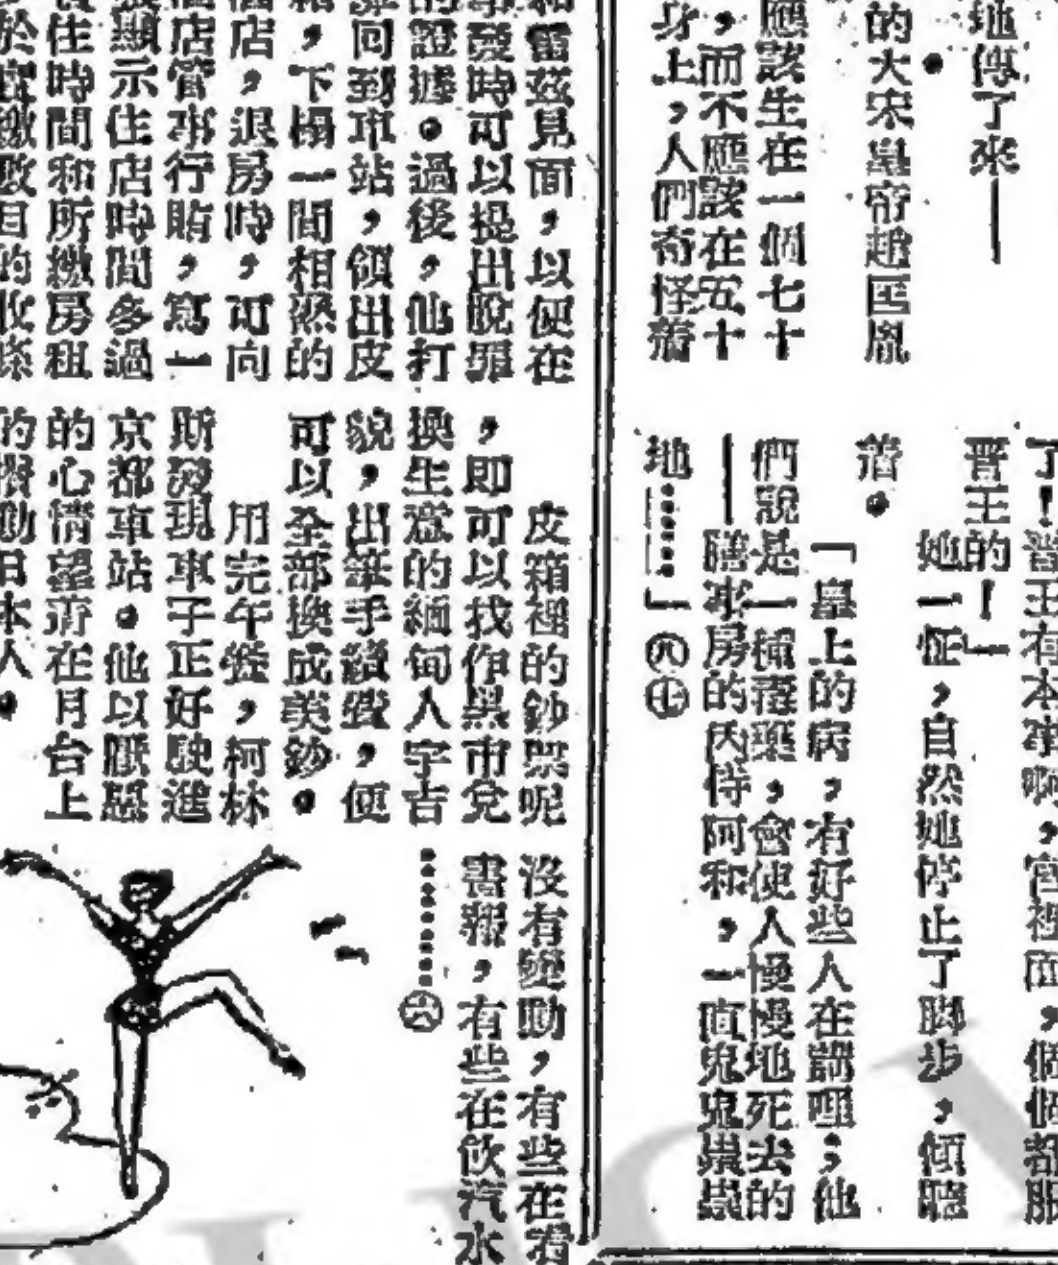 地傳了來——
。
的大宋皇帝趙匡胤
應該生在一個七十
，而不應該在五十
身上，人們奇怪着
了！晋王有本事啊，宮裡面，個個都服
晋王的！」
她一怔，自然她停止了脚步，傾聽
着。
「皇上的病，有好些人在講哩；他
們說是一種毒藥，會使人慢慢地死去的
——膳事房的內侍阿和，一直鬼鬼祟祟
地……」
和雷兹見面，以便在
事發時可以提出脫罪
的證據。過後，他打
算回到車站，領出皮
箱，下榻一間相熟的
酒店，退房時，可向
酒店管事行賄，寫一
張顯示住店時間多過
住時間和所繳房租
於實繳數目的收條
皮箱裡的鈔票呢
，即可以找作黑市兌
換生意的緬甸人宇吉
貌，出筆手續費，便
可以全部換成美鈔。
用完午餐，柯林
斯發現車子正好駛進
京都車站。他以厭惡
的心情望齊在月台上
的攢動日本人。
沒有變動，有些在看
書報，有些在飲汽水
………㊅